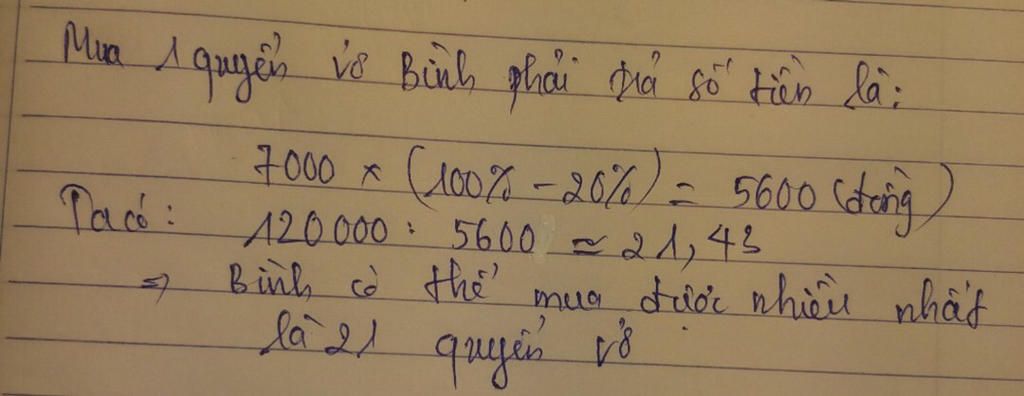 Mua 1 quyển vở Bình phải trả số tiền là:
7000 × (100% - 20%) = 5600 (đồng)
Ta có: 120000 : 5600 ≃ 21,43
⇒ Bình có thể mua được nhiều nhất
là 21 quyển vở